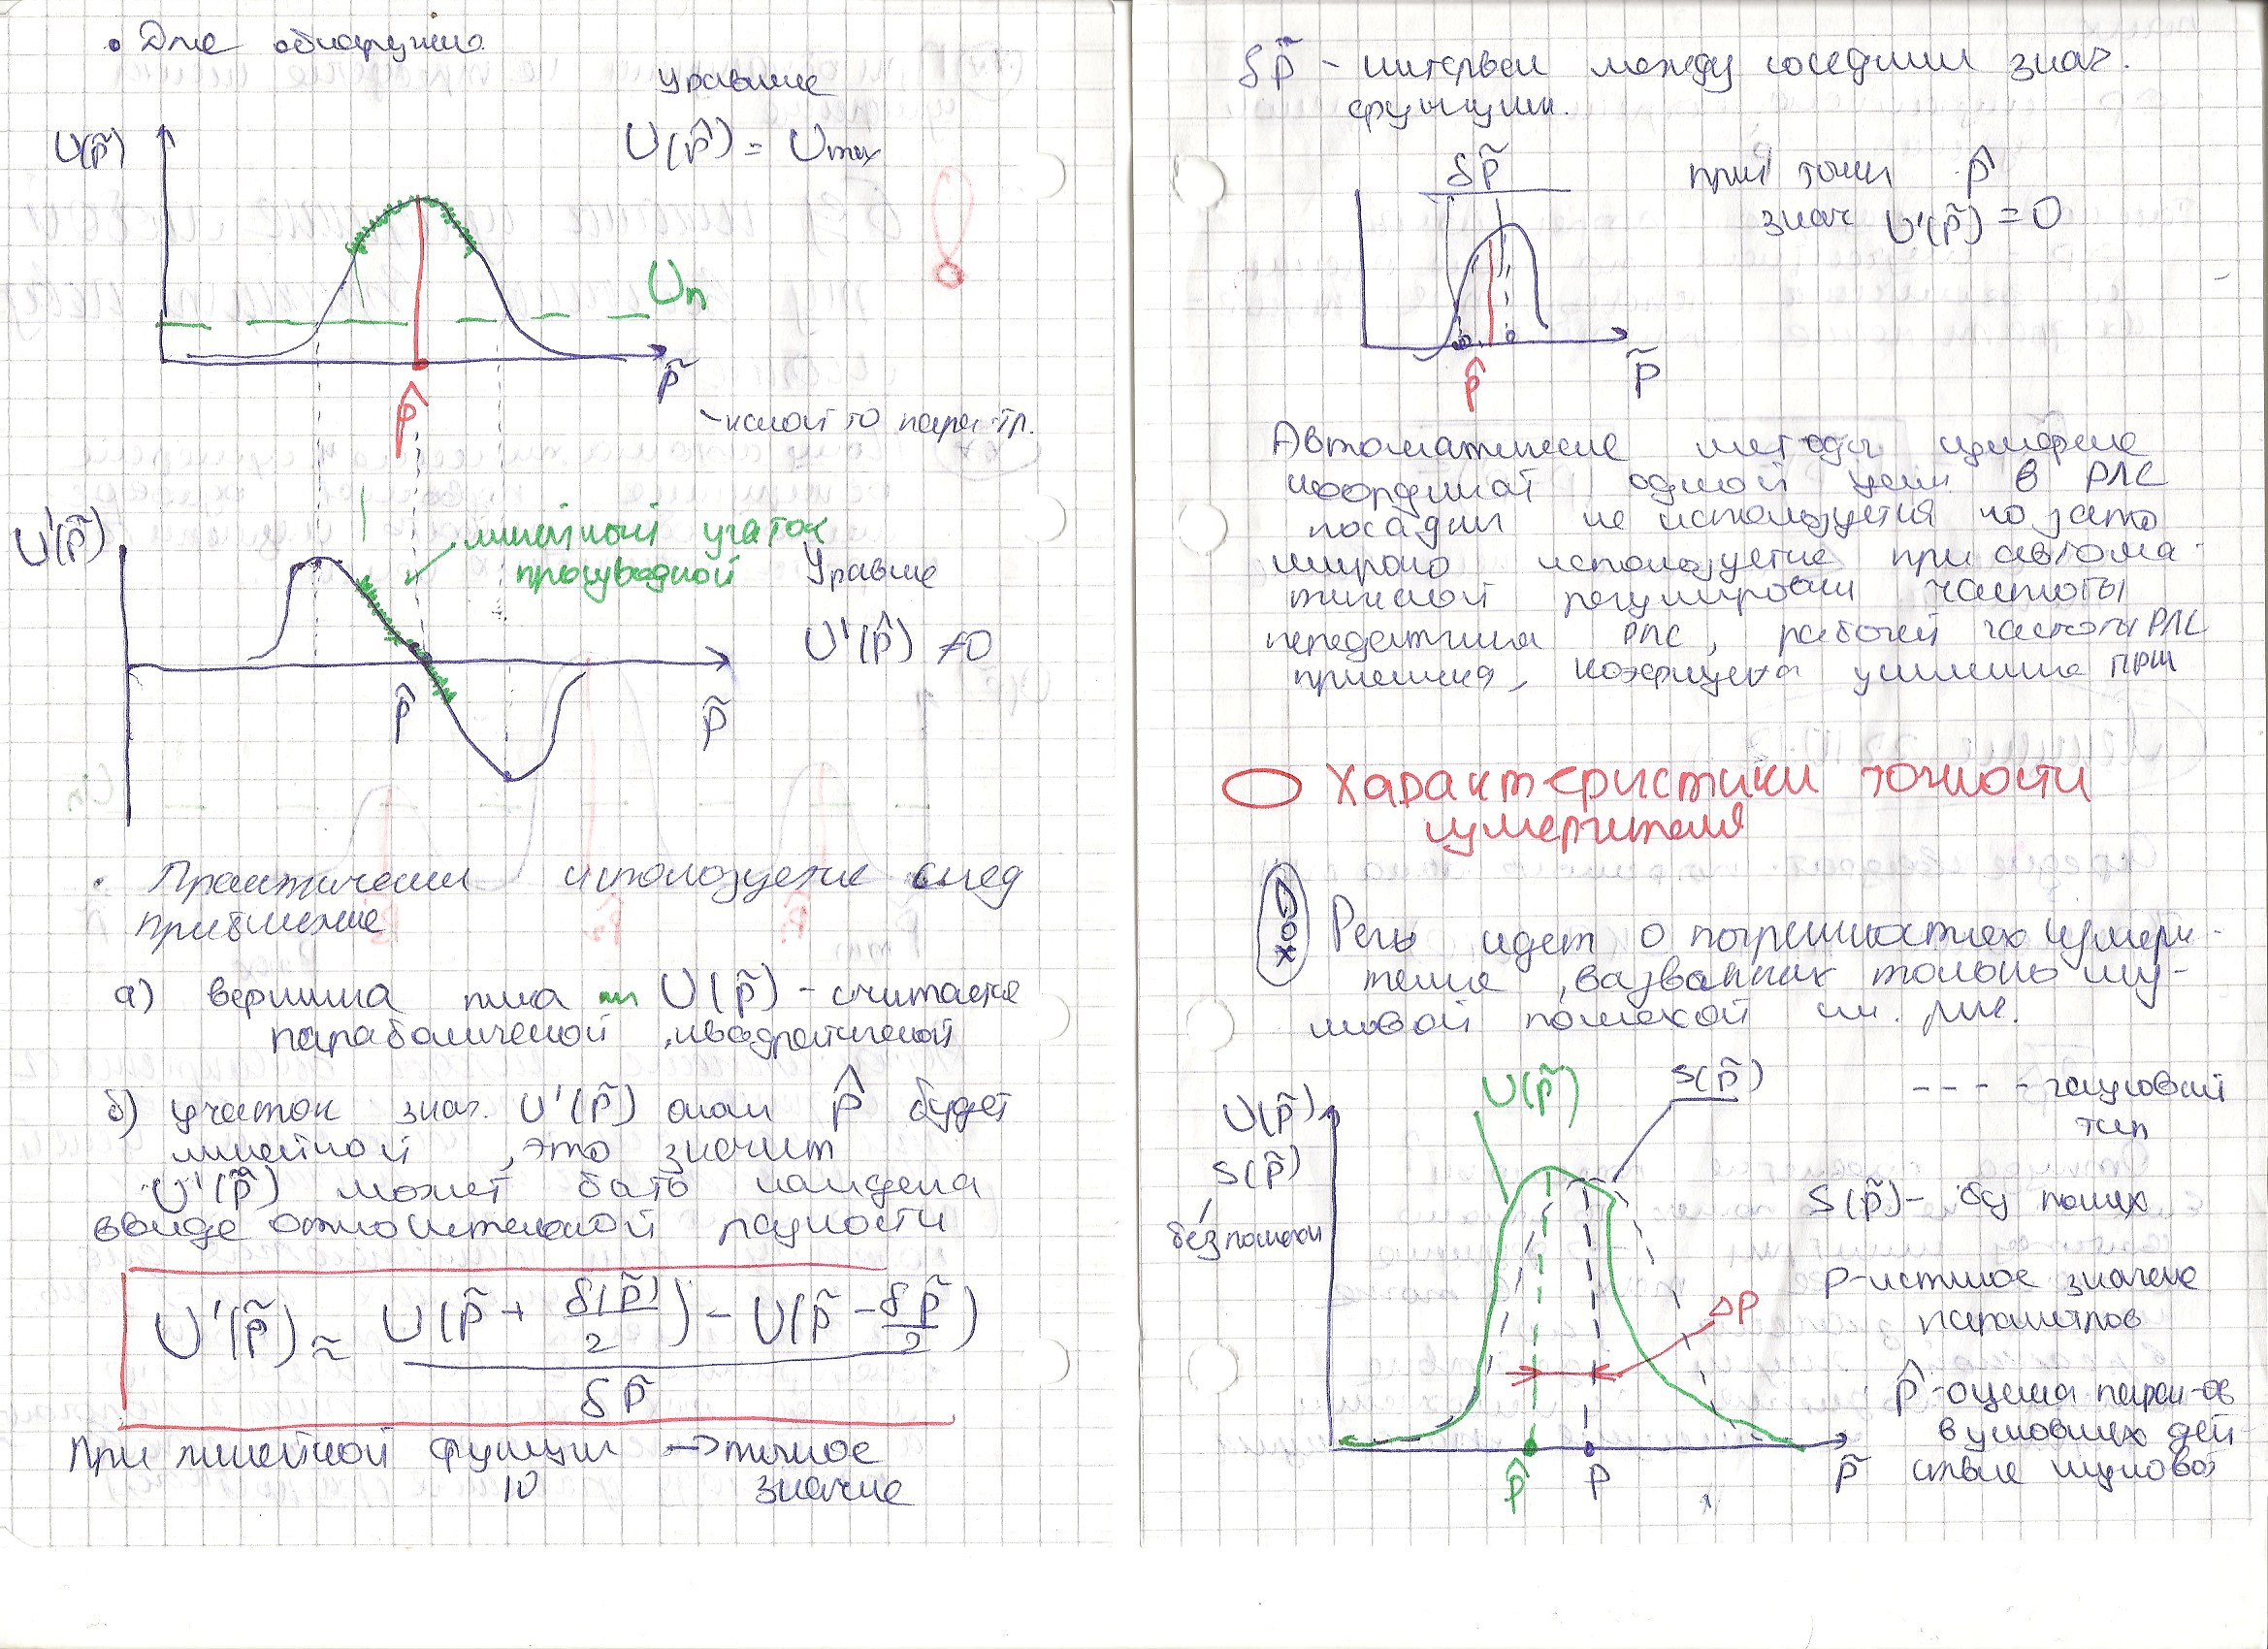 • Для обнаружен.
Уравние
U(p̂) = Umax
U(p̃)
Uп
p̃
p̂
U'(p̃)
линейный учаток
производной
Уравние
U'(p̂) ≠0
p̂
p̃
• Практически используется след
приближние
а) вершина пика U(p̃) - считается
параболической, квадратичной
б) участок знач. U'(p̃) окол p̂ будет
линейной, это значит
U'(p̃) может бать найдена
ввиде относительной разности
U'(p̃) ≈ U(p̃ + δ(p̃)/2) - U(p̃ - δp̃/2) / δp̃
При линейной функции → точное
10 значние
δp̃ - интервал между соседними знач.
функции.
δp̃
при точки p̂
знач U'(p̃) = 0
p̂
p̃
Автоматические методы измерние
координат одной цели в РЛС
посадки не используется но зато
широко используетие при автома-
тической регулировки частоты
передатчика РЛС, рабочей частоты РЛС
приемника, коэфицента усиление ПРМ
Характеристики точности
измерителя
Речь идет о погрешностях измери-
теля, вазванных только шу-
мовой помехой
U(p̃)
S(p̃)
U(p̃)
S(p̃)
без помехи
---- гаусовский
тип
S(p̃) - бз помех
P - истиное значене
параметров
ΔP
p̂ - оценка парам-ов
в условиях дей
ствие шумовой
p̂
P
p̃